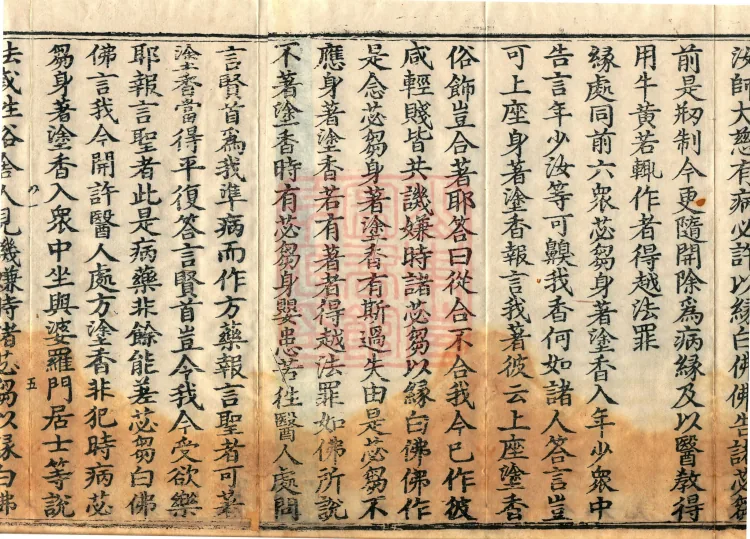 汝師大愍有病必許以緣白佛佛告諸苾芻
前是刱制今更隨開除爲病緣及以醫教得
用牛黃若輒作者得越法罪
緣處同前六衆苾芻身著塗香入年少衆中
告言年少汝等可齅我香何如諸人荅言豈
可上座身著塗香報言我著彼云上座塗香
俗飾豈合著耶荅曰從合不合我今已作彼
咸輕賤皆共譏嫌時諸苾芻以緣白佛佛作
是念苾芻身著塗香有斯過失由是苾芻不
應身著塗香若有著者得越法罪如佛所說
不著塗香時有苾芻身嬰患苦往醫人處問
言賢首爲我準病而作方藥報言聖者可著
塗香當得平復荅言賢首豈令我今受欲樂
耶報言聖者此是病藥非餘能差苾芻白佛
佛言我今開許醫人處方塗香非犯時病苾
芻身著塗香入衆中坐與婆羅門居士等說
法或往俗舍人見譏嫌時諸苾芻以緣白佛
五